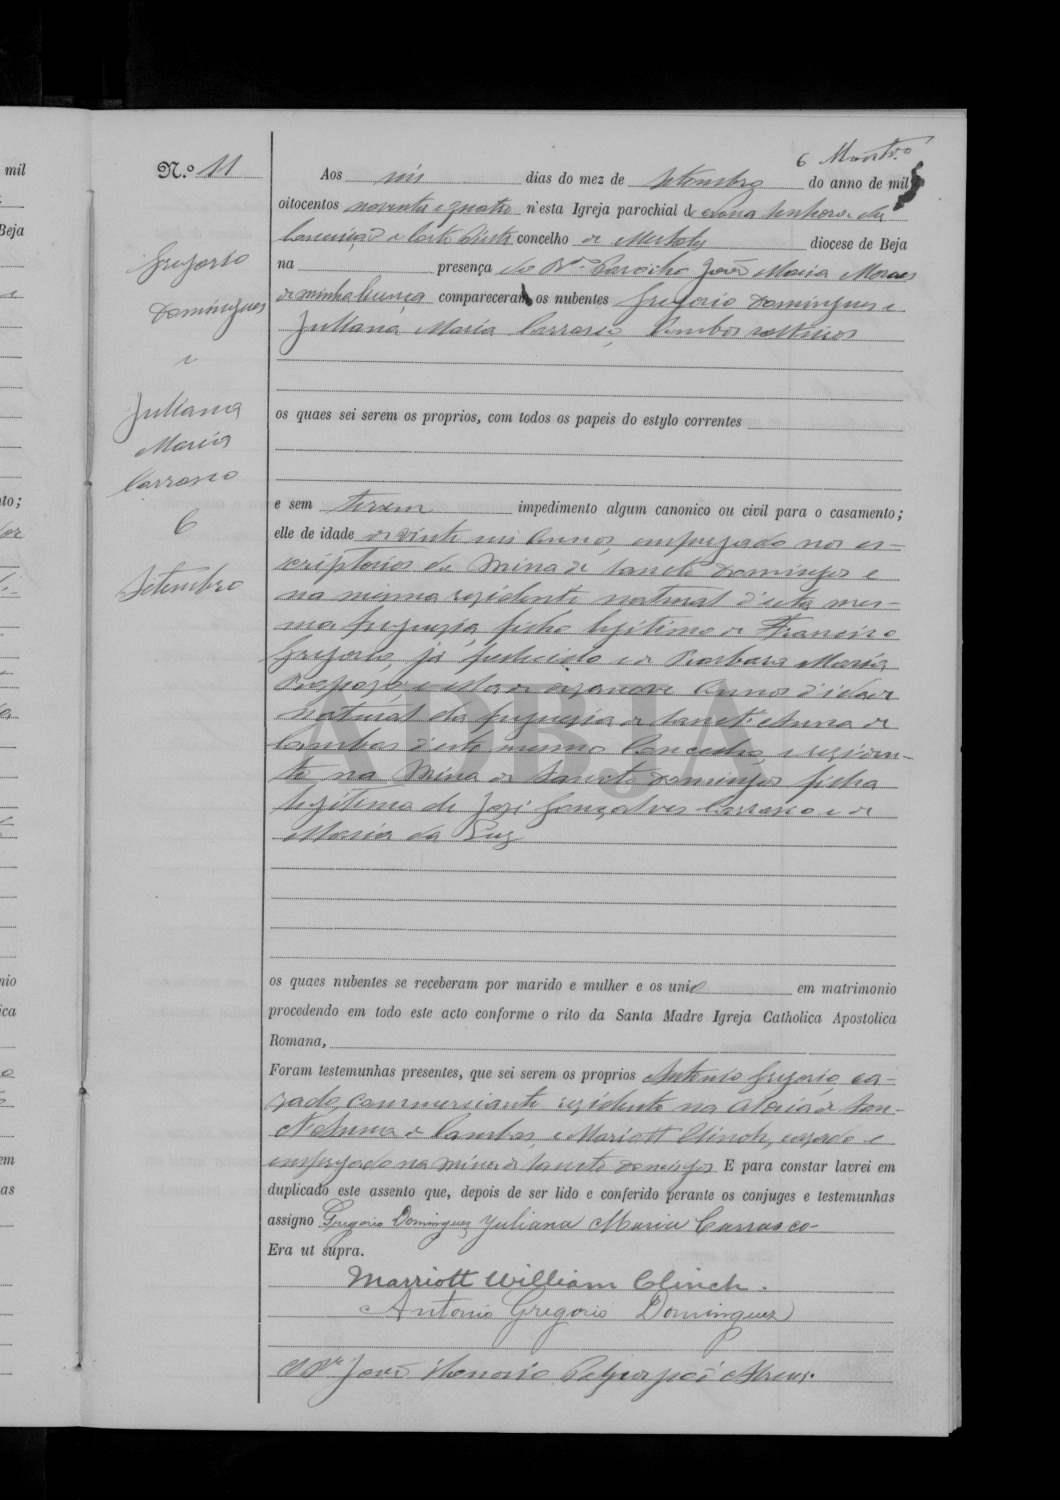 6 Maart.º
N.º 11
Aos seis dias do mez de Setembro do anno de mil
oitocentos noventa e quatro n'esta Igreja parochial de Nossa Senhora da
Conceição de Corte do Pinto concelho de Mertola diocese de Beja
na presença do João Maria Moraes
de minha licença compareceram os nubentes Gregorio Domingues e
Juliana Maria Carrasco, ambos solteiros
Gregorio
Domingues
e
Juliana
Maria
Carrasco
6
Setembro
os quaes sei serem os proprios, com todos os papeis do estylo correntes
e sem terem impedimento algum canonico ou civil para o casamento;
elle de idade de vinte seis annos, empregado nos es-
criptorios da Mina de Sancto Domingos e
na mesma rezidente natural d'esta mes-
ma freguezia, filho legitimo de Francisco
Gregorio, já fallecido e de Barbara Maria
Raposo, e ella de dezanove annos d'idade
natural da freguezia de Sanct'Anna de
Cambas d'este mesmo Concelho, e reziden-
te na Mina de Sancto Domingos filha
legitima de José Gonçalves Carrasco e de
Maria da Luz
ADBJA
os quaes nubentes se receberam por marido e mulher e os uni em matrimonio
procedendo em todo este acto conforme o rito da Santa Madre Igreja Catholica Apostolica
Romana,
Foram testemunhas presentes, que sei serem os proprios Antonio Gregorio, ca-
zado, commerciante rezidente na Aldeia de San-
ct'Anna de Cambas, e Mariott Clinch, cazado e
empregado na mina de Sancto Domingos. E para constar lavrei em
duplicado este assento que, depois de ser lido e conferido perante os conjuges e testemunhas
assigno Gregorio Domingues Juliana Maria Carrasco
Era ut supra.
Marriott William Clinch.
Antonio Gregorio Domingues